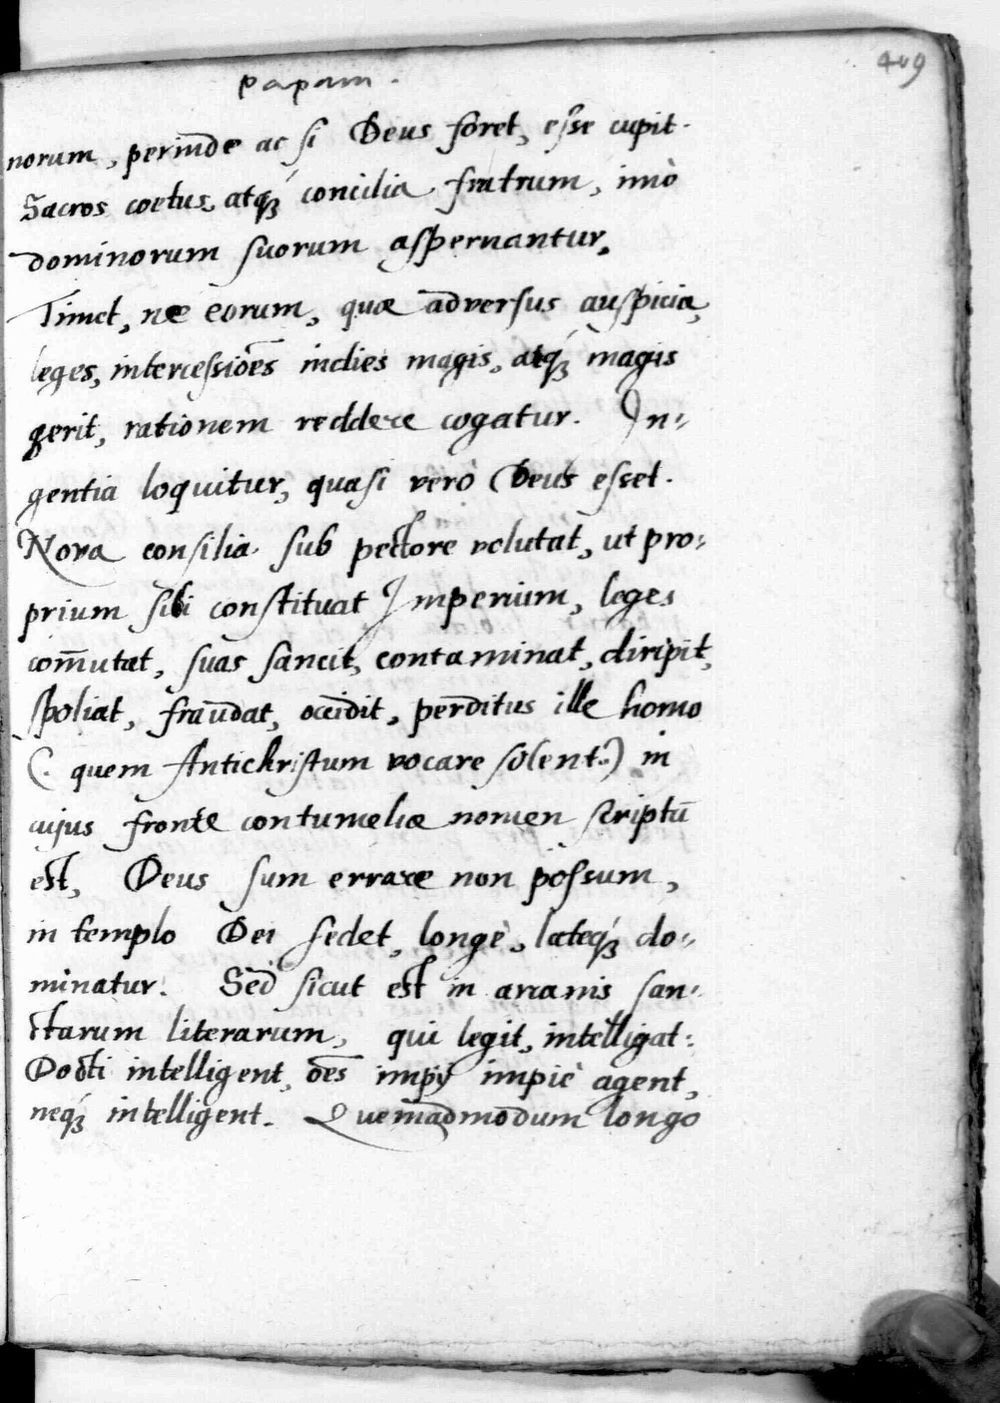 409
papam.
norum, perinde ac si Deus foret, esse cupit.
Sacros coetus, atq́ꝫ concilia fratrum, imò
dominorum suorum aspernantur.
Timet, ne eorum, quæ adversus auspicia,
leges, intercessiões indies magis, atq́ꝫ magis
gerit, rationem reddere cogatur. In-
gentia loquitur, quasi verò Deus esset.
Nova consilia sub pectore volutat, ut pro-
prium sibi constituat Imperium, leges
com̄utat, suas sancit, contaminat, diripit,
spoliat, fraudat, occidit, perditus ille homo
(. quem Antichristum vocare solent.) in
cujus fronte contumeliæ nomen scriptū
est, Deus sum errare non possum,
in templo Dei sedet, longè, lateq́ꝫ do-
minatur. Sed sicut est in arcanis san-
ctarum literarum, qui legit, intelligat:
Docti intelligent, oēs impij impiè agent,
neq́ꝫ intelligent. Quemadmodum longo